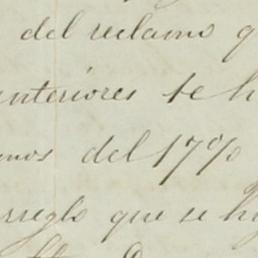 del reclamo q
anteriores se h
mos del 17%
rreglo que se h